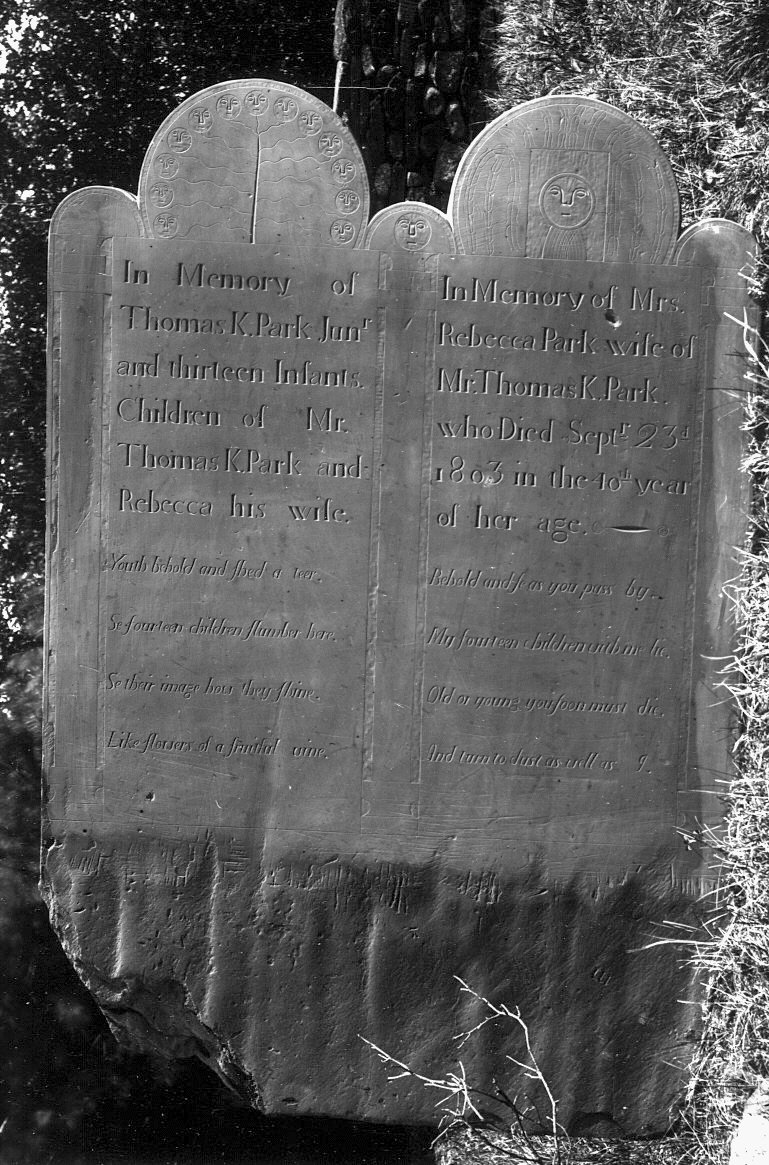 In Memory of
Thomas K. Park Junʳ
and thirteen Infants.
Children of Mr.
Thomas K. Park and
Rebecca his wife.
Youth behold and shed a teer.
Se fourteen children slumber here.
Se their image how they shine.
Like flowers of a fruitful vine.
In Memory of Mrs.
Rebecca Park wife of
Mr. Thomas K. Park.
who Died Septʳ. 23ᵈ
1803 in the 40ᵗʰ year
of her age.
Behold and se as you pass by.
My fourteen children with me lie.
Old or young you soon must die.
And turn to dust as well as I.